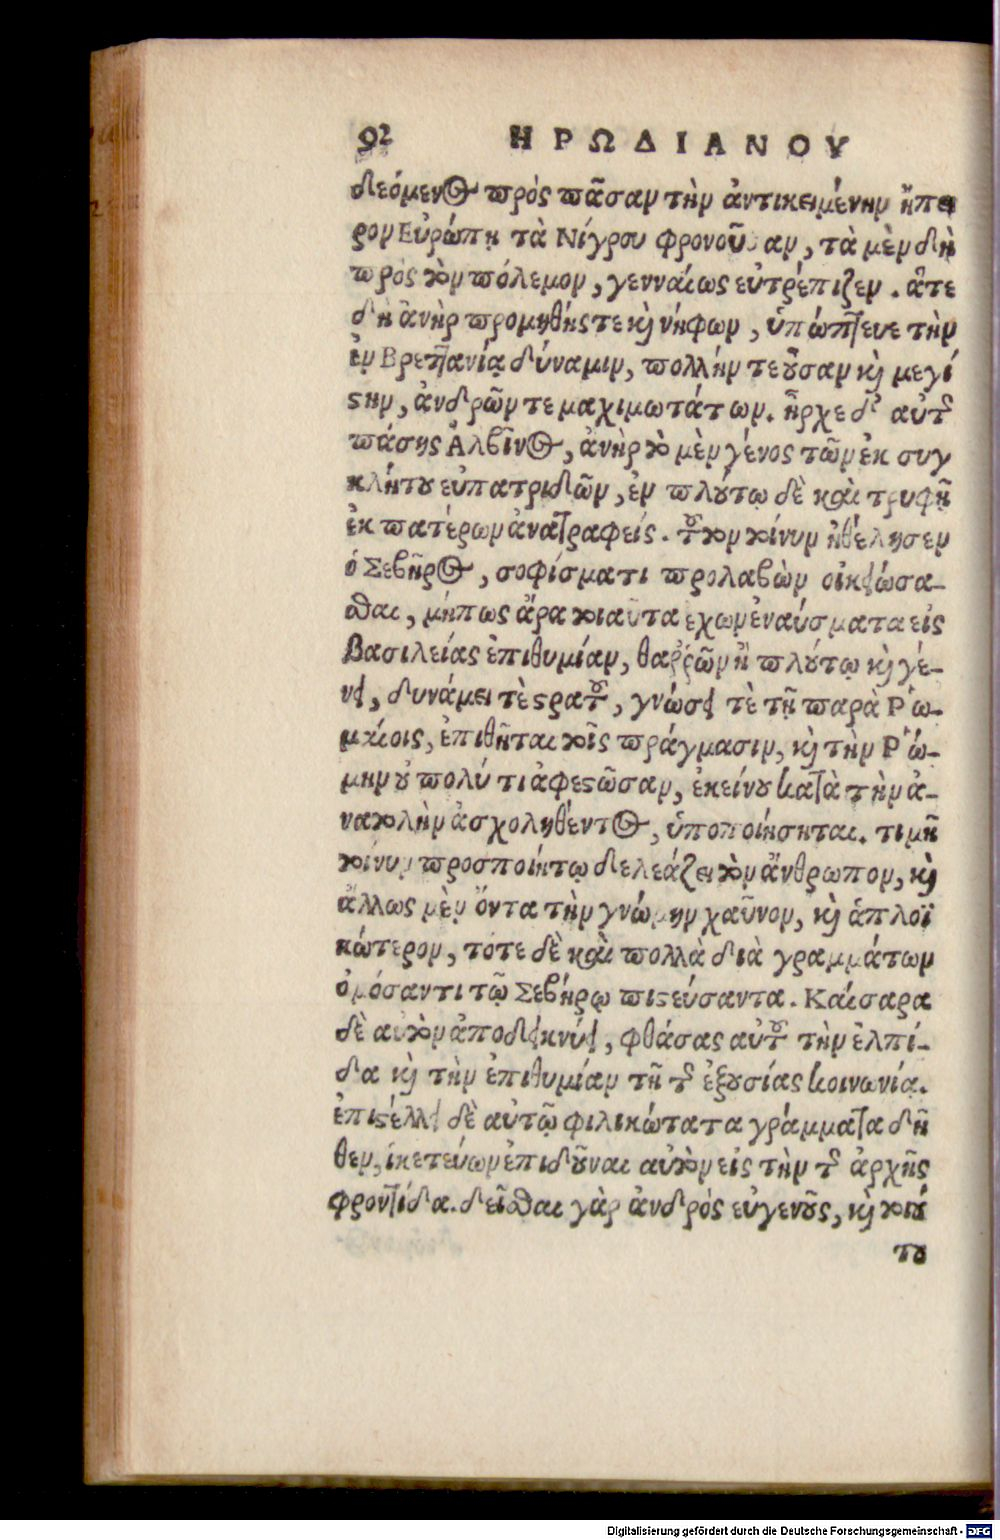 92 ΗΡΩΔΙΑΝΟΥ
δεόμενος πρὸς πᾶσαν τὴν ἀντικειμένην ἤπει
ρον Εὐρώπῃ τὰ Νίγρου φρονοῦσαν, τὰ μὲν δὴ
πρὸς τὸν πόλεμον, γενναίως εὐτρέπιζεν. ἅτε
δὴ ἀνὴρ προμηθής τε κὶ νήφων, ὑπώπτευε τὴν
ἐν Βρεττανίᾳ δύναμιν, πολλήν τε οὖσαν κὶ μεγί
στην, ἀνδρῶν τε μαχιμωτάτων. ἦρχε δ' αὐτῆς
πάσης Ἀλβῖνος, ἀνὴρ τὸ μὲν γένος τῶν ἐκ συγ
κλήτου εὐπατριδῶν, ἐν πλούτῳ δὲ καὶ τρυφῇ
ἐκ πατέρων ἀνατραφείς. τοῦτον τοίνυν ἠθέλησεν
ὁ Σεβῆρος, σοφίσματι προλαβὼν οἰκειώσα-
σθαι, μήπως ἄρα τοιαῦτα ἔχων ἐναύσματα εἰς
βασιλείας ἐπιθυμίαν, θαῤῥῶν ἢ πλούτῳ κὶ γέ-
νει, δυνάμει τὲ στρατοῦ, γνώσει τὲ τῇ παρὰ Ῥω-
μαίοις, ἐπιθῆται τοῖς πράγμασιν, κὶ τὴν Ῥώ-
μην οὐ πολύ τι ἀφεστῶσαν, ἐκείνου κατὰ τὴν ἀ-
νατολὴν ἀσχοληθέντος, ὑποποίησηται. τιμῇ
τοίνυν προσποιήτῳ δελεάζει τὸν ἄνθρωπον, κὶ
ἄλλως μὲν ὄντα τὴν γνώμην χαῦνον, κὶ ἁπλοϊ
κώτερον, τότε δὲ καὶ πολλὰ διὰ γραμμάτων
ὀμόσαντι τῷ Σεβήρῳ πιστεύσαντα. Καίσαρα
δὲ αὐτὸν ἀποδεικνύει, φθάσας αὐτοῦ τὴν ἐλπί-
δα κὶ τὴν ἐπιθυμίαν τῇ τῆς ἐξουσίας κοινωνίᾳ.
ἐπιστέλλει δὲ αὐτῷ φιλικώτατα γράμματα δῆ
θεν, ἱκετεύων ἐπιδοῦναι αὐτὸν εἰς τὴν τῆς ἀρχῆς
φροντίδα. δεῖσθαι γὰρ ἀνδρὸς εὐγενοῦς, κὶ τοιού
του
Digitalisierung gefördert durch die Deutsche Forschungsgemeinschaft - DFG